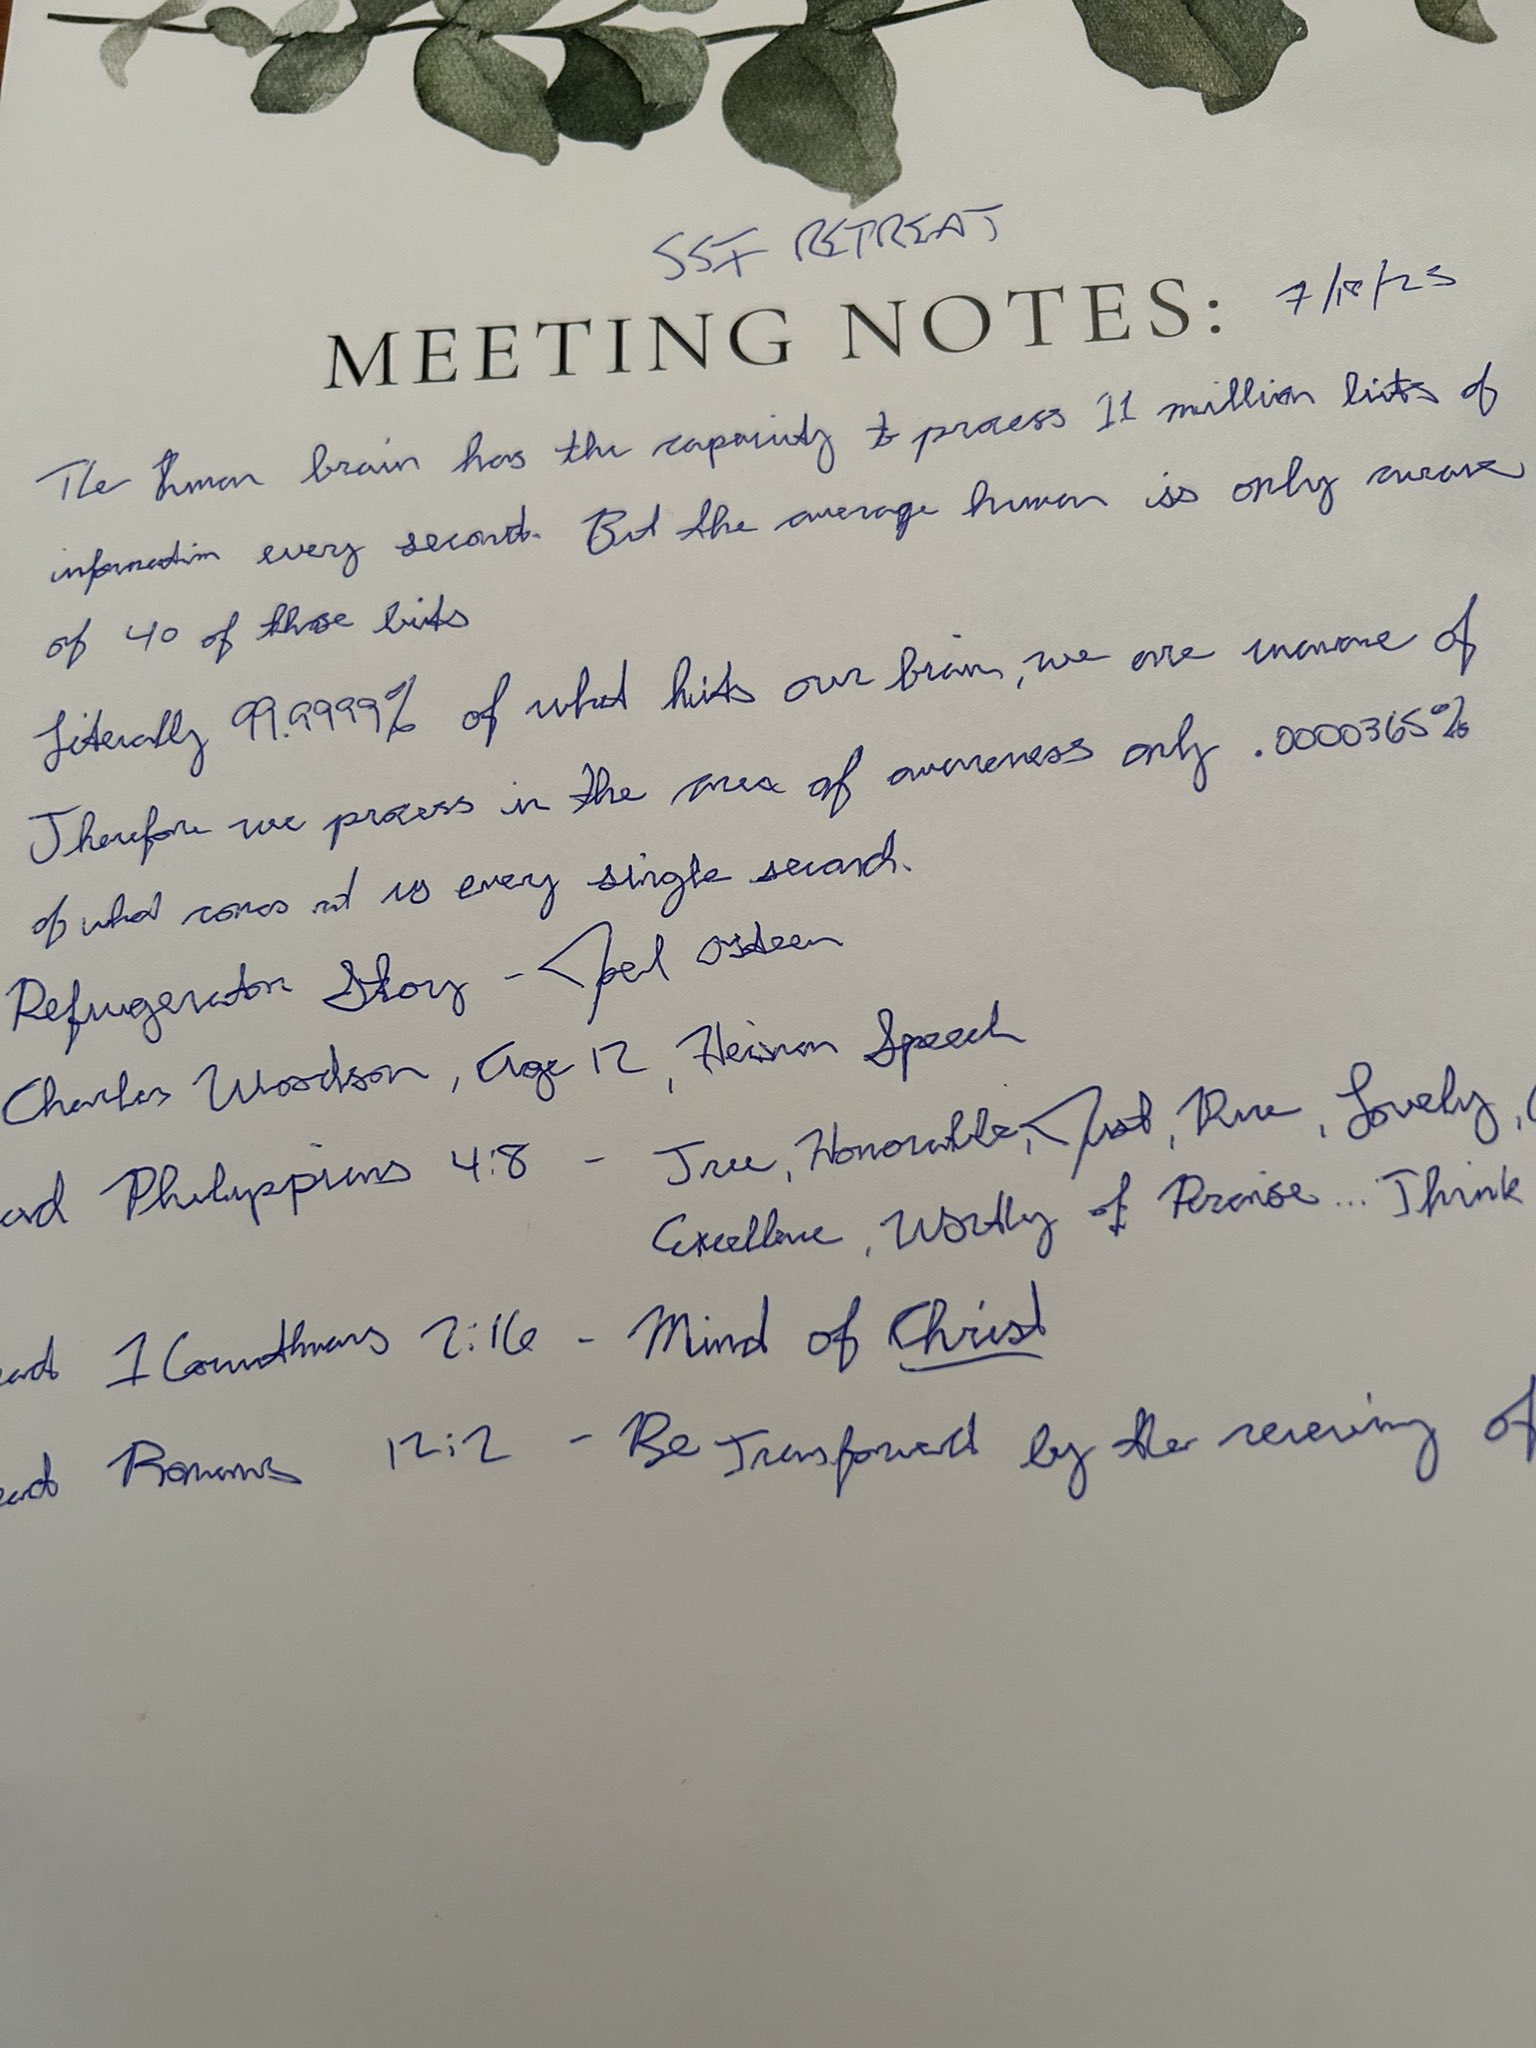 SSF RETREAT
MEETING NOTES: 7/18/25
The human brain has the capacity to process 11 million bits of
information every second. But the average human is only aware
of 40 of those bits
Literally 99.9999% of what hits our brain, we are unaware of
Therefore we process in the area of awareness only .0000365%
of what comes at us every single second.
Refrigerator Story - Joel Osteen
Charles Woodson, age 12, Heisman Speech
Philippians 4:8 - True, Honorable, Just, Pure, Lovely,
Excellence, Worthy of Praise... Think
1 Corinthians 2:16 - Mind of Christ
Romans 12:2 - Be Transformed by the renewing of